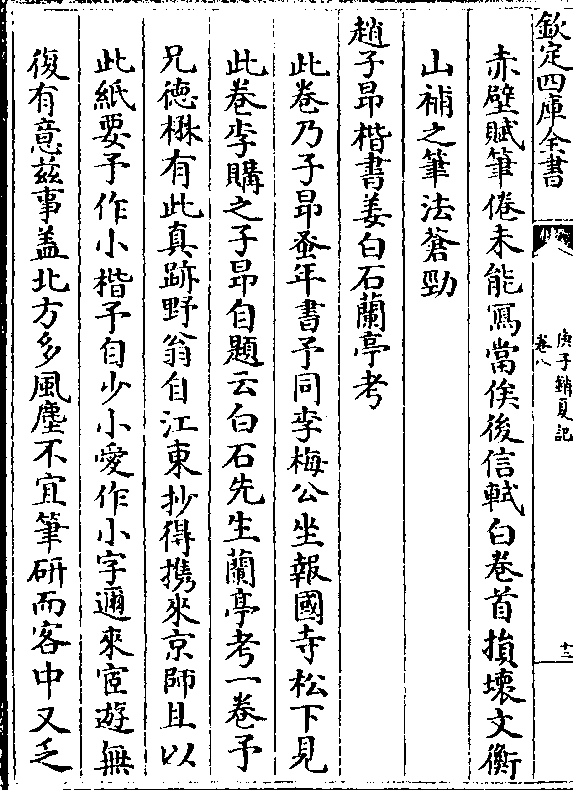 欽定四庫全書
庚子銷夏記
卷八
十三
赤壁賦筆倦未能寫當俟後信軾白卷首損壞文衡
山補之筆法蒼勁
趙子昂楷書姜白石蘭亭考
此卷乃子昂蚤年書予同李梅公坐報國寺松下見
此卷李購之子昂自題云白石先生蘭亭考一卷予
兄德楙有此真跡野翁自江東抄得攜來京師且以
此紙要予作小楷予自少小愛作小字邇來宦遊無
復有意兹事盖北方多風塵不宜筆研而客中又乏